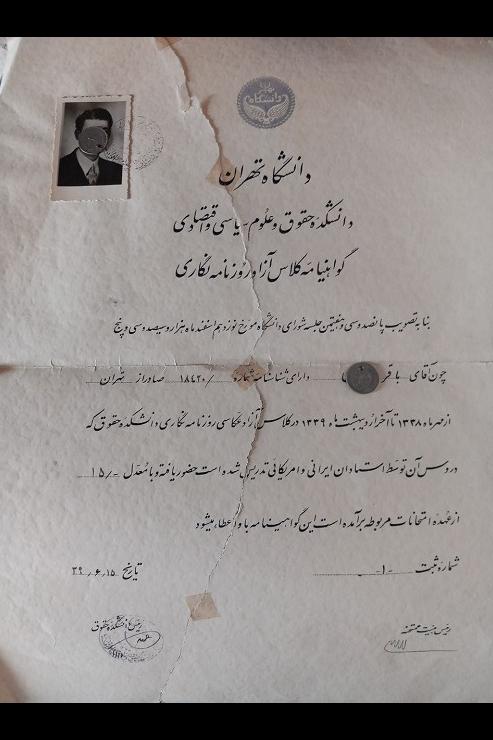 دانشگاه تهران
دانشکده حقوق و علوم سیاسی و اقتصادی
گواهینامه کلاس آزاد روزنامه نگاری
بنا به تصویب پانصد و سی و هفتمین جلسه شورای دانشگاه مورخ نوزدهم اسفند ماه هزار و سیصد و سی و پنج
چون آقای باقر دارای شناسنامه شماره ۱۸۴۲۰/ صادر از تهران
از مهر ماه ۱۳۳۸ تا آخر اردیبهشت ماه ۱۳۳۹ در کلاس آزاد عکاسی روزنامه نگاری دانشکده حقوق که
دروس آن توسط استادان ایرانی و امریکائی تدریس شده است حضور یافته و با معدل ۱۵/-
از عهده امتحانات مربوطه برآمده است این گواهینامه باو اعطاء میشود
شماره ثبت -۱-
تاریخ ۳۹٫۶٫۱۵
رئیس هیئت ممتحنه
رئیس دانشکده حقوق